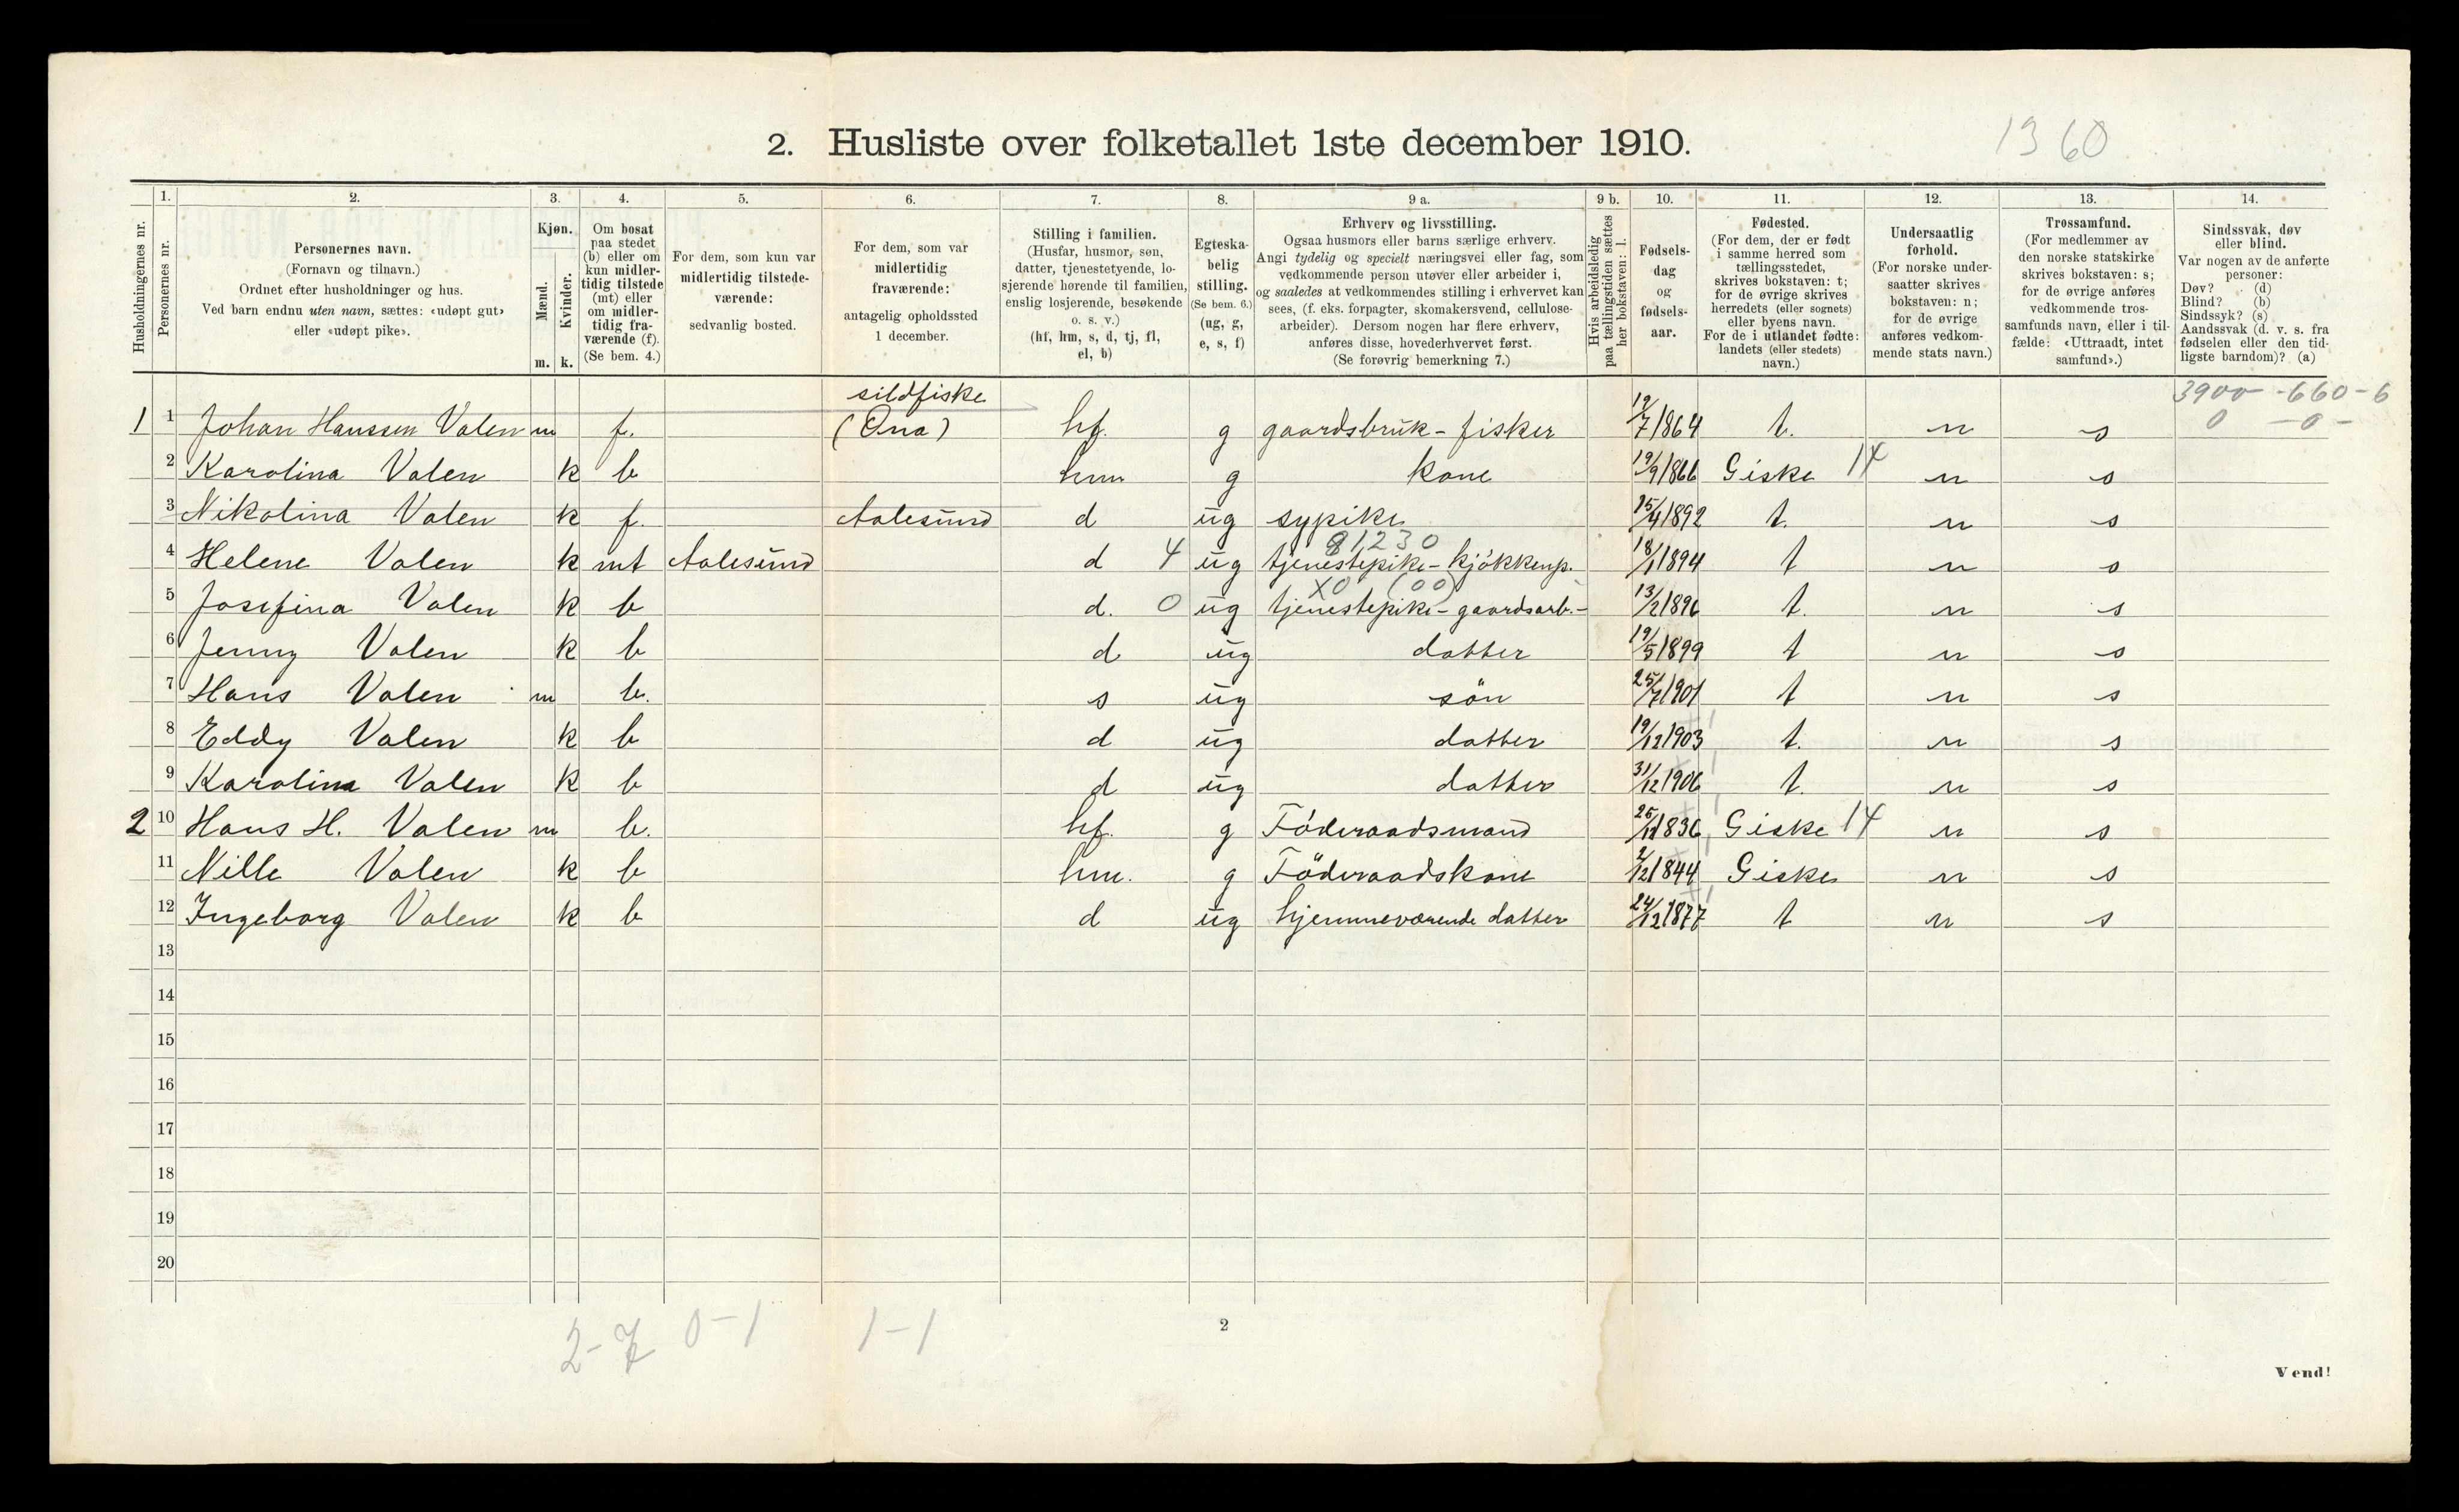 2. Husliste over folketallet 1ste december 1910.
1360
Husholdningernes nr.
1. Personernes nr.
2. Personernes navn. (Fornavn og tilnavn.) Ordnet efter husholdninger og hus. Ved barn endnu uten navn, sættes: «udøpt gut» eller «udøpt pike».
3. Kjøn. Mænd. m. Kvinder. k.
4. Om bosat paa stedet (b) eller om kun midlertidig tilstede (mt) eller om midlertidig fraværende (f). (Se bem. 4.)
5. For dem, som kun var midlertidig tilstedeværende: sedvanlig bosted.
6. For dem, som var midlertidig fraværende: antagelig opholdssted 1 december.
7. Stilling i familien. (Husfar, husmor, søn, datter, tjenestetyende, losjerende hørende til familien, enslig losjerende, besøkende o. s. v.) (hf, hm, s, d, tj, fl, el, b)
8. Egteskabelig stilling. (Se bem. 6.) (ug, g, e, s, f)
9 a. Erhverv og livsstilling. Ogsaa husmors eller barns særlige erhverv. Angi tydelig og specielt næringsvei eller fag, som vedkommende person utøver eller arbeider i, og saaledes at vedkommendes stilling i erhvervet kan sees, (f. eks. forpagter, skomakersvend, cellulosearbeider). Dersom nogen har flere erhverv, anføres disse, hovederhvervet først. (Se forøvrig bemerkning 7.)
9 b. Hvis arbeidsledig paa tællingstiden sættes her bokstaven: l.
10. Fødselsdag og fødselsaar.
11. Fødested. (For dem, der er født i samme herred som tællingsstedet, skrives bokstaven: t; for de øvrige skrives herredets (eller sognets) eller byens navn. For de i utlandet fødte: landets (eller stedets) navn.)
12. Undersaatlig forhold. (For norske undersaatter skrives bokstaven: n; for de øvrige anføres vedkommende stats navn.)
13. Trossamfund. (For medlemmer av den norske statskirke skrives bokstaven: s; for de øvrige anføres vedkommende trossamfunds navn, eller i tilfælde: «Uttraadt, intet samfund».)
14. Sindssvak, døv eller blind. Var nogen av de anførte personer: Døv? (d) Blind? (b) Sindssyk? (s) Aandssvak (d. v. s. fra fødselen eller den tidligste barndom)? (a)
sildfiske 3900 - 660 - 6
1 1 Johan Hanssen Valen m f. (Ona) hf. g gaardsbruk - fisker 19/7 1864 t. n s 0 - 0 -
2 Karolina Valen k b hm g kone 19/9 1866 Giske 14 n s
3 Nikolina Valen k f. Aalesund d ug sypike 15/4 1892 t. n s
81230
4 Helene Valen k mt Aalesund d 4 ug tjenestepike - kjøkkenp. 18/1 1894 t n s
X0 (00)
5 Josefina Valen k b d. 0 ug tjenestepike - gaardsarb. - 13/2 1896 t. n s
6 Jenny Valen k b d ug datter 19/5 1899 t n s
7 Hans Valen m b. s ug sön 25/7 1901 t n s
8 Eddy Valen k b d ug datter 19/12 1903 t. n s
9 Karolina Valen k b d ug datter 31/12 1906 t. n s
2 10 Hans H. Valen m b. hf. g Föderaadsmand 1836 Giske 14 n s
11 Nille Valen k b hm. g Föderaadskone 2/12 1844 Giske n s
12 Ingeborg Valen k b d ug hjemmeværende datter 24/12 1877 t n s
13
14
15
16
17
18
19
20
2-7 0-1 1-1
2
Vend!